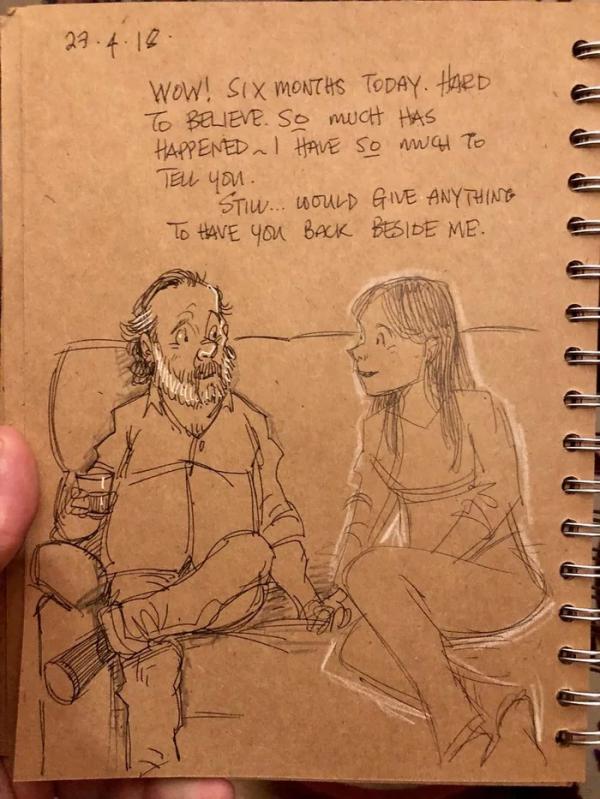 29.4.18.
WOW! SIX MONTHS TODAY. HARD
TO BELIEVE. SO MUCH HAS
HAPPENED ~ I HAVE SO MUCH TO
TELL YOU.
STILL... WOULD GIVE ANYTHING
TO HAVE YOU BACK BESIDE ME.